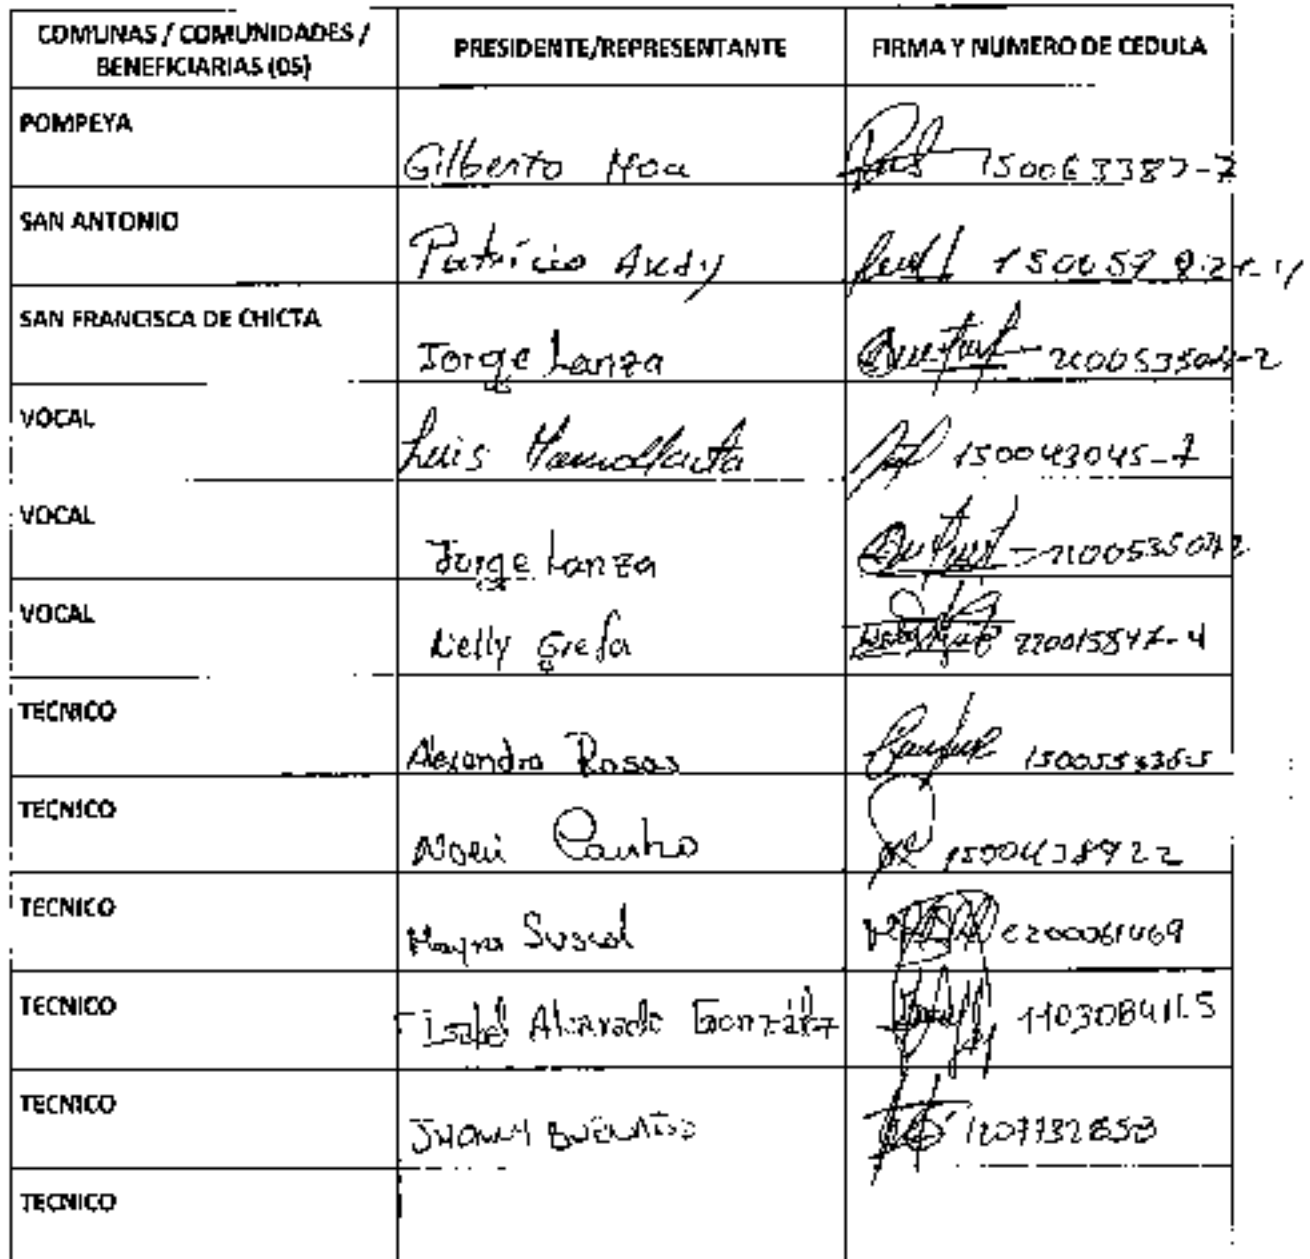 COMUNAS / COMUNIDADES /
BENEFICIARIAS (05)
PRESIDENTE/REPRESENTANTE
FIRMA Y NUMERO DE CEDULA
POMPEYA
Gilberto Noa
150063387-7
SAN ANTONIO
Patricio Andy
SAN FRANCISCA DE CHICTA
Jorge Lanza
210053504-2
VOCAL
Luis Mamallacta
150043045-7
VOCAL
Jorge Lanza
VOCAL
Nelly Grefa
220015847-4
TECNICO
Alexandra Rosas
TECNICO
Noei
1500438922
TECNICO
Mayra Suscal
2200061469
TECNICO
Isabel Alvarado González
1103084165
TECNICO
1207732853
TECNICO